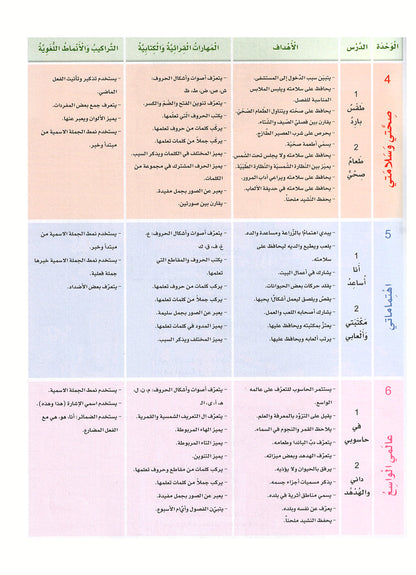 الوَحْدَة
الدَّرْس
الأَهْداف
المَهارات القِرائيَّة وَالكِتابِيَّة
التَّراكيب وَالأَنْماط اللُّغَوِيَّة
4
صِحَّتي وَسَلامَتي
1
طَقْسٌ
بارِدٌ
2
طَعامٌ
صِحِّيٌّ
- يتبيّن سبب الدّخول إلى المستشفى.
- يحافظ على سلامته ويلبس الملابس
المناسبة للفصل.
- يحافظ على صحّته ويتناول الطّعام الصّحّيّ.
- يقارن بين فصليّ الصّيف والشّتاء.
- يحرص على شرب العصير الطّازج.
- يسمّي أطعمة صحّيّة.
- يحافظ على سلامته ولا يجلس تحت الشّمس.
- يميّز بين النّظّارة الشّمسيّة والنّظّارة الطّبّيّة.
- يحافظ على سلامته ويراعي آداب المرور.
- يحافظ على سلامته في حديقة الألعاب.
- يحفظ النّشيد ملحّنًا.
- يتعرّف أصوات وأشكال الحروف:
ش، ص، ض، ط، ظ.
- يتعرّف تنوين الفتح والضّمّ والكسر.
- يكتب الحروف الّتي تعلّمها.
- يركّب كلمات من حروف تعلّمها.
- يركّب جملاً من كلمات تعلّمها.
- يميّز المختلف في الكلمات ويذكر السبب.
- يميّز الحرف المشترك في مجموعة من
الكلمات.
- يعبر عن الصّور بجمل مفيدة.
- يقارن بين صورتين.
- يستخدم تذكير وتأنيث الفعل
الماضي.
- يتعرّف جمع بعض المفردات.
- يميّز الألوان ويعبر عنها.
- يستخدم نمط الجملة الاسمية من
مبتدأ وخبر.
5
اهْتِماماتي
1
أَنا
أُساعِدُ
2
مَكْتَبَتي
وَأَلْعابي
- يبدي اهتمامًا بالزّراعة ومساعدة والده.
- يلعب ويطيع والديه ليحافظ على
سلامته.
- يشارك في أعمال البيت.
- يقلد حركات بعض الحيوانات.
- يقصّ ويلصق ليعمل أشكالاً يحبها.
- يشارك أصحابه اللعب والعمل.
- يعتزّ بمكتبته ويحافظ عليها.
- يرتب ألعابه ويحافظ عليها.
- يتعرّف أصوات وأشكال الحروف: ع،
غ، ف، ق، ك
- يكتب الحروف والمقاطع التي
تعلمها.
- يركّب كلمات من حروف تعلمها.
- يركّب جملاً من كلمات تعلمها.
- يعبر عن الصور بجمل سليمة.
- يميز المدود في كلمات تعلمها.
- يميز المختلف ويذكر السبب.
- يستخدم نمط الجملة الاسمية من
مبتدأ وخبر.
- يستخدم الجملة الاسمية خبرها
جملة فعلية.
- يتعرّف بعض الأضداد.
6
عالَمي الواسِعُ
1
في
حاسوبي
2
داني
والهُدْهُد
- يستثمر الحاسوب للتعرّف على عالمه
الواسع.
- يقبل على التزوّد بالمعرفة والعلم.
- يلاحظ القمر والنجوم في السماء.
- يتعرّف دبّ الباندا وطعامه.
- يتعرّف الهدهد وبعض ميزاته.
- يرفق بالحيوان ولا يؤذيه.
- يذكر مسميات أجزاء جسمه.
- يسمي مناطق أثرية في بلده.
- يعرّف عن نفسه وبلده.
- يحفظ النشيد ملحنًا.
- يتعرّف أصوات وأشكال الحروف: م، ن، ل،
هـ، و، ي، لا
- يتعرّف ال التعريف الشمسية والقمرية.
- يميز الهاء المربوطة.
- يميز التاء المربوطة.
- يميز التنوين.
- يركب كلمات من مقاطع وحروف تعلمها.
- يركب جملاً من كلمات تعلمها.
- يعبر عن الصور بجمل مفيدة.
- يتبين الفصول وأيام الأسبوع.
- يستخدم نمط الجملة الاسمية.
- يستخدم اسمي الإشارة (هذا وهذه).
- يستخدم الضمائر: أنا، هو، هي مع
الفعل المضارع.